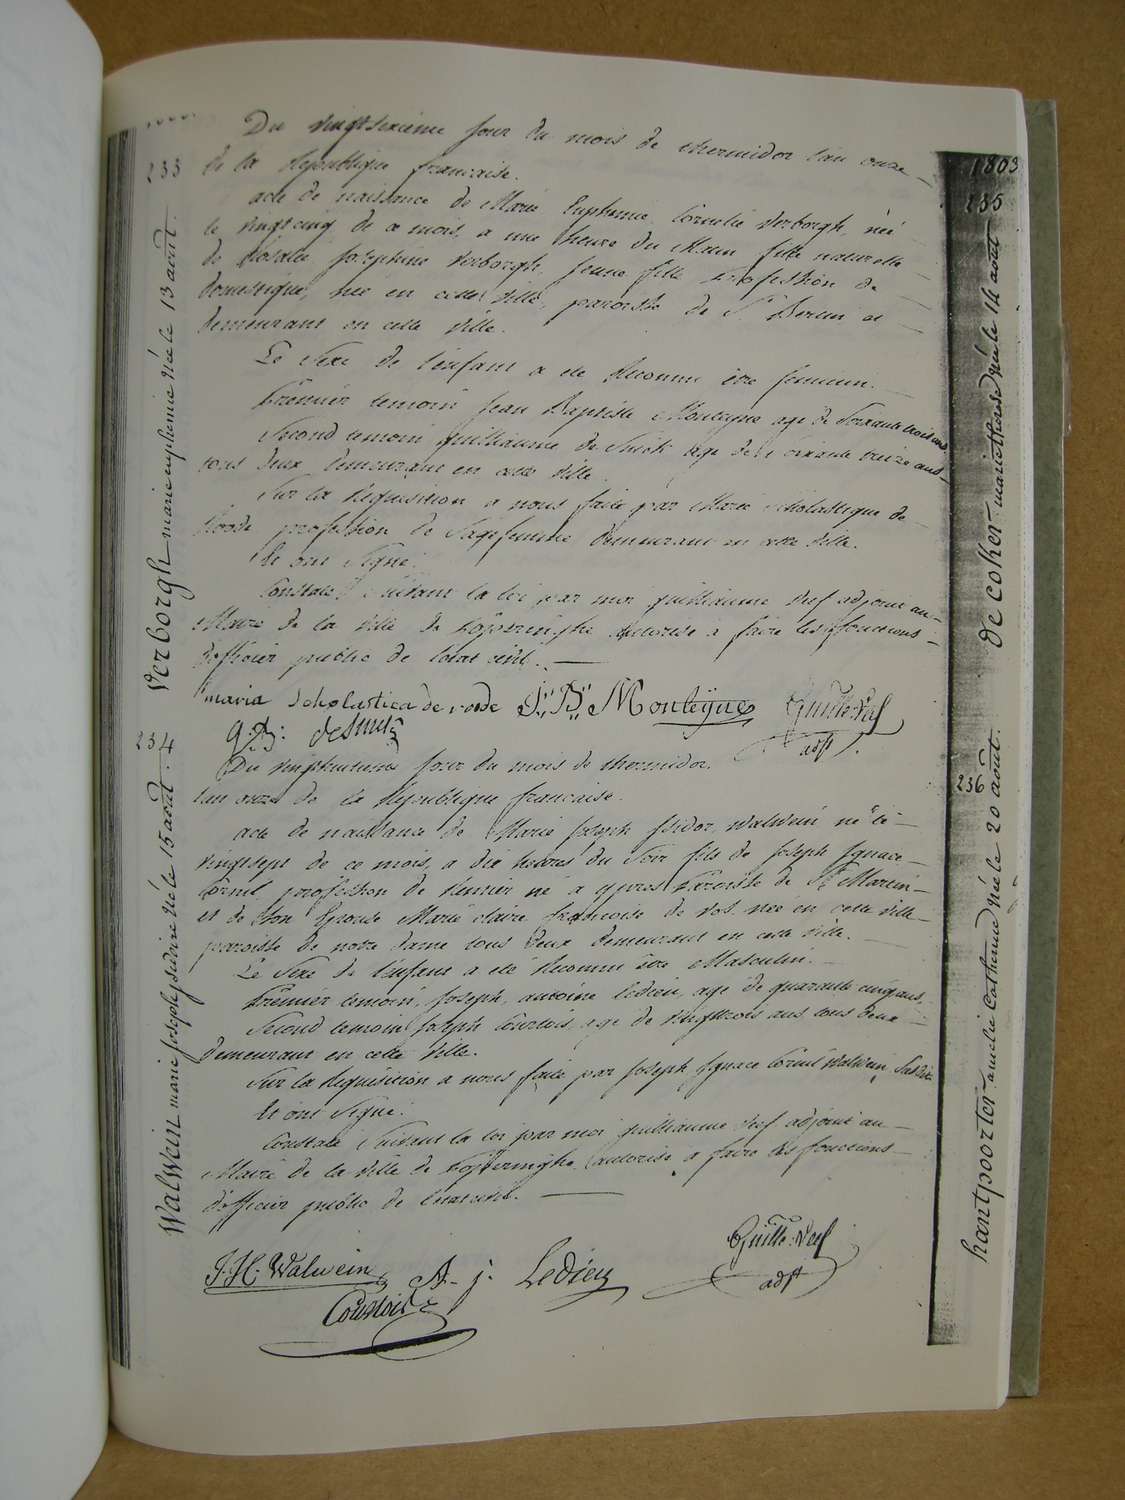 233
Verborgh marie euphemie née le 13 août.
Du vingtsixieme jour du mois de thermidor l'an onze
de la Republique francaise.
acte de naissance de Marie Euphemie Cornelie Verborgh, née
le vingtcinq de ce mois, a une heure du Matin fille naturelle
de Rosalie Josephine Verborgh, jeune fille profession de
domestique, née en cette ville, paroisse de St Bertin et
demeurant en cette ville.
Le Sexe de l'enfant a eté Reconnu être feminin.
Premier temoin Jean Baptiste Montegne agé de Soixante trois ans
Second temoin guilliaume de Smidt agé de Soixante treize ans,
tous deux demeurant en cette ville.
Sur la Requisition a nous faite par Marie Scholastique de
Roode profession de Sagefemme demeurant en cette ville.
Et ont Signé.
Constaté Suivant la loi par moi guilliaume Veef adjoint au
Maire de la ville de Poperinghe Autorisé a faire les fonctions
d'officier public de l'etat civil.
maria Scholastica de roode J:" B:" Monteÿne Guille: Veef
adjt.
234
Walwein marie joseph isidoire né le 15 août.
Du vingthuitieme jour du mois de thermidor
l'an onze de la Republique francaise.
acte de naissance de Marie Joseph Isidor Walwein né le
vingtsept de ce mois, a dix heures du Soir fils de Joseph Ignace
Cornil, profession de né a ypres Paroisse de St Martin
et de Son Epouse Marie claire francoise de Vos née en cette ville
paroisse de notre dame tous deux demeurant en cette ville.
Le Sexe de l'enfant a eté Reconnu être Masculin.
Premier temoin, Joseph, antoine Ledieu, agé de quarante cinq ans,
Second temoin Joseph Courtois agé de vingttrois ans tous deux
demeurant en cette ville.
Sur la Requisition a nous faite par Joseph Ignace Cornil Walwein
Et ont Signé.
Constaté Suivant la loi par moi guilliaume Veef adjoint au
Maire de la ville de Poperinghe autorisé a faire les fonctions
d'officier public de l'etat civil.
J. H. Walwein A. j. Ledieu Guille: Veef
Courtois adjt
1803
235
de coker marie therese née le 14 août
236
hantpoorter amelie Catherine née le 20 août.